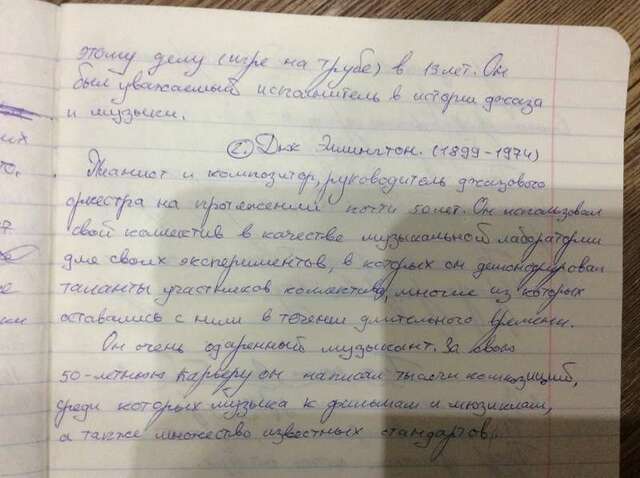 этому делу (игре на трубе) в 13 лет. Он
был уважаемый исполнитель в истории джаза
и музыки.
2. Дюк Элингтон. (1899-1974)
Пианист и композитор, руководитель джазового
оркестра на протяжении почти 50 лет. Он использовал
свой коллектив в качестве музыкальной лаборатории
для своих экспериментов, в которых он демонстрировал
таланты участников коллектива, многие из которых
оставались с ним в течении длительного времени.
Он очень одаренный музыкант. За свою
50-летнюю карьеру он написал тысячи композиций,
среди которых музыка к фильмам и мюзиклам,
а также множество известных стандартов.